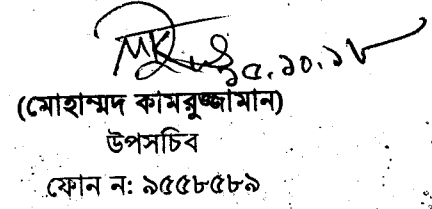 ১৫.১০.১৮
(মোহাম্মদ কামরুজ্জামান)
উপসচিব
ফোন ন: ৯৫৫৮৫৮৯